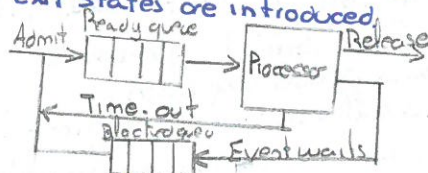 exit states are introduced.
Ready queue
Admit
Processor
Release
Time-out
Blocked queu
Event waits